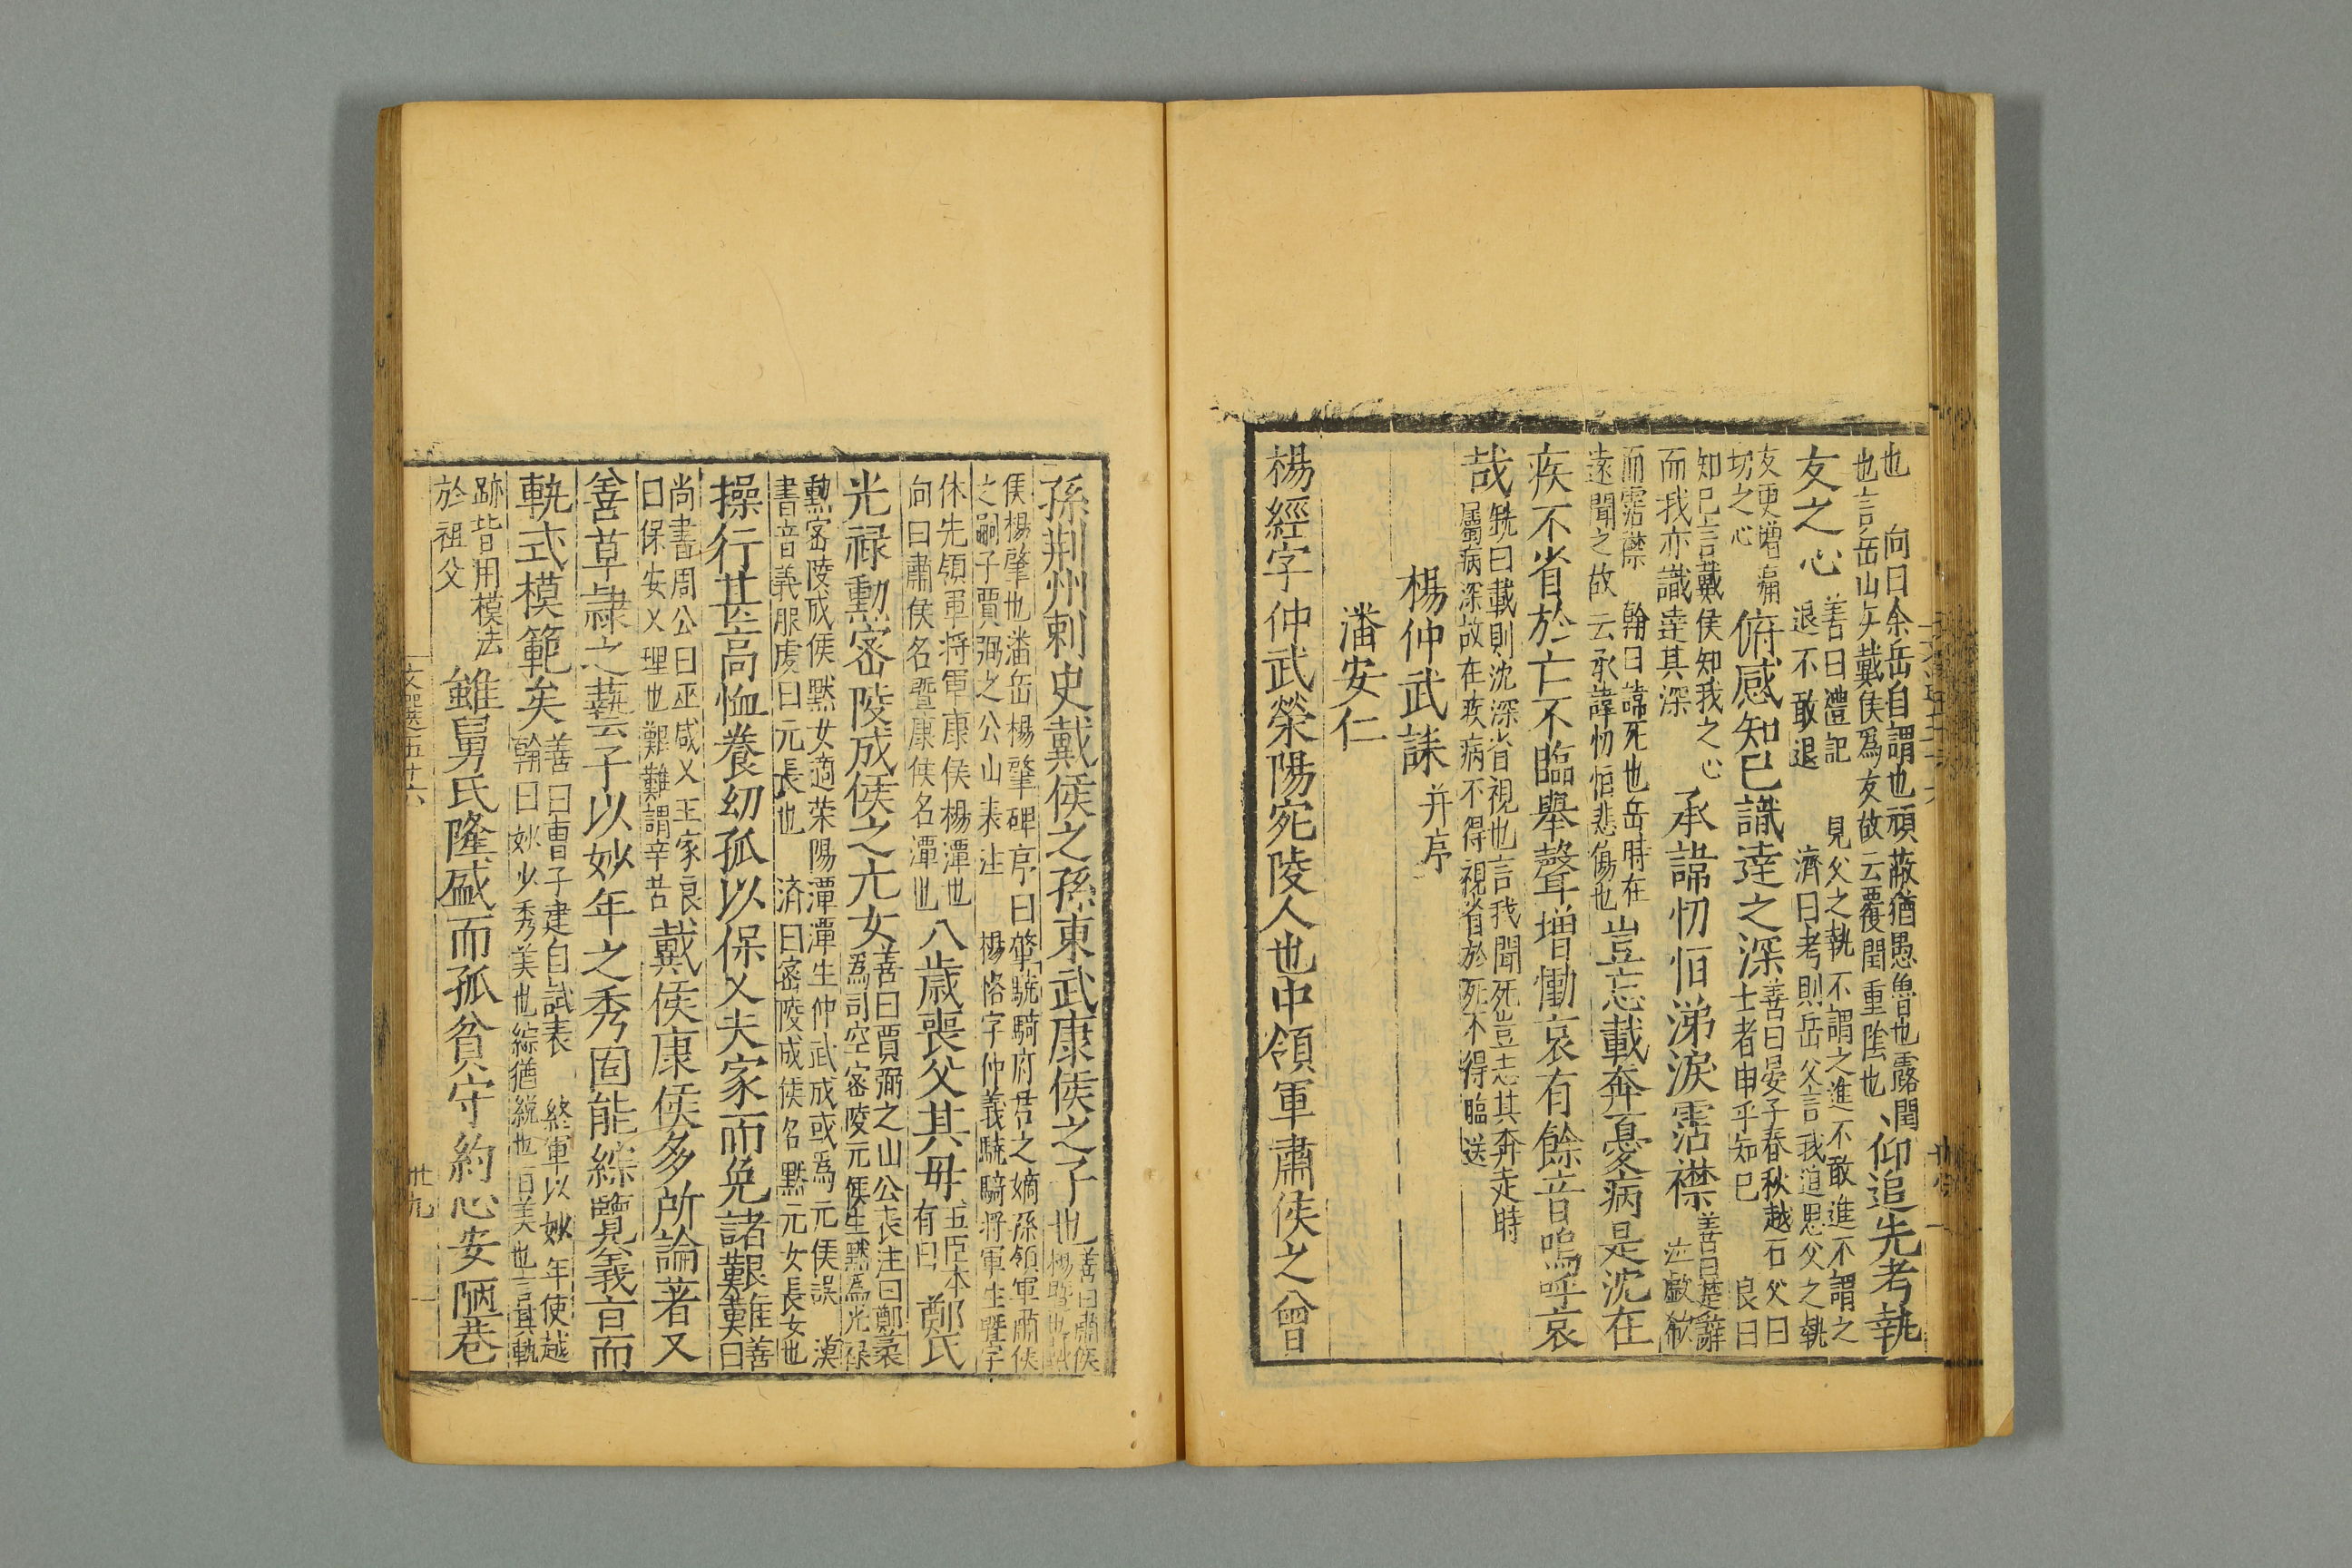 也　向曰余岳自謂也頑蔽猶愚魯也露潤
也言岳山與戴侯爲友故云覆閏重陰也
仰追先考執
友之心
善曰禮記　見父之執不謂之進不敢進不謂之
退不敢退　濟曰考則岳父言我道思父之執
友更增痛
切之心
俯感知己識達之深
善曰晏子春秋越石父曰
士者申乎知己　良曰
知己言戴侯知我之心
而我亦識達其深
承諱忉怛涕淚霑襟
善曰楚辭
泣歔欷
而霑襟　翰曰諱死也岳時在
遠聞之故云承諱忉怛悲傷也
豈忘載奔憂病是沈在
疾不省於亡不臨舉聲增慟哀有餘音嗚呼哀
哉
銑曰載則沈深省視也言我聞死豈忘其奔走時
屬病深故在疾病不得視省於死不得臨送
楊仲武誄并序
潘安仁
楊經字仲武滎陽宛陵人也中領軍肅侯之曾
孫荆州刺史戴侯之孫東武康侯之子也
善曰肅侯
楊暨也戴
侯楊肇也潘岳楊肇碑序曰肇驍騎府君之嫡孫領軍肅侯
之嗣子賈弼之公山表注　楊恪字仲義驍騎將軍生暨字
休先領軍将軍康侯楊潭也
向曰肅侯名暨康侯名潭也
八歲喪父其母
五臣本
有曰
鄭氏
光祿勳密陵成侯之元女
善曰賈弼之山公表注曰鄭袤
爲司空密陵元侯生黙爲光祿
勳密陵成侯黙女適荣陽潭潭生仲武成或爲元侯誤　漢
書音義服虔曰元長也　濟曰密陵成侯名黙元女長女也
操行甚高恤養幼孤以保乂夫家而免諸艱難
善
曰
尚書周公曰巫咸乂王家良
曰保安乂理也艱難謂辛苦
戴侯康侯多所論著又
善草隷之藝子以妙年之秀固能綜覽義亯而
軌式模範矣
善曰曹子建自試表　終軍以妙年使越
翰曰妙少秀美也綜猶統也百美也言其執
跡皆用模法
於祖父
雖舅氏隆盛而孤貧守約心安陋巷
文選五十六
卅九